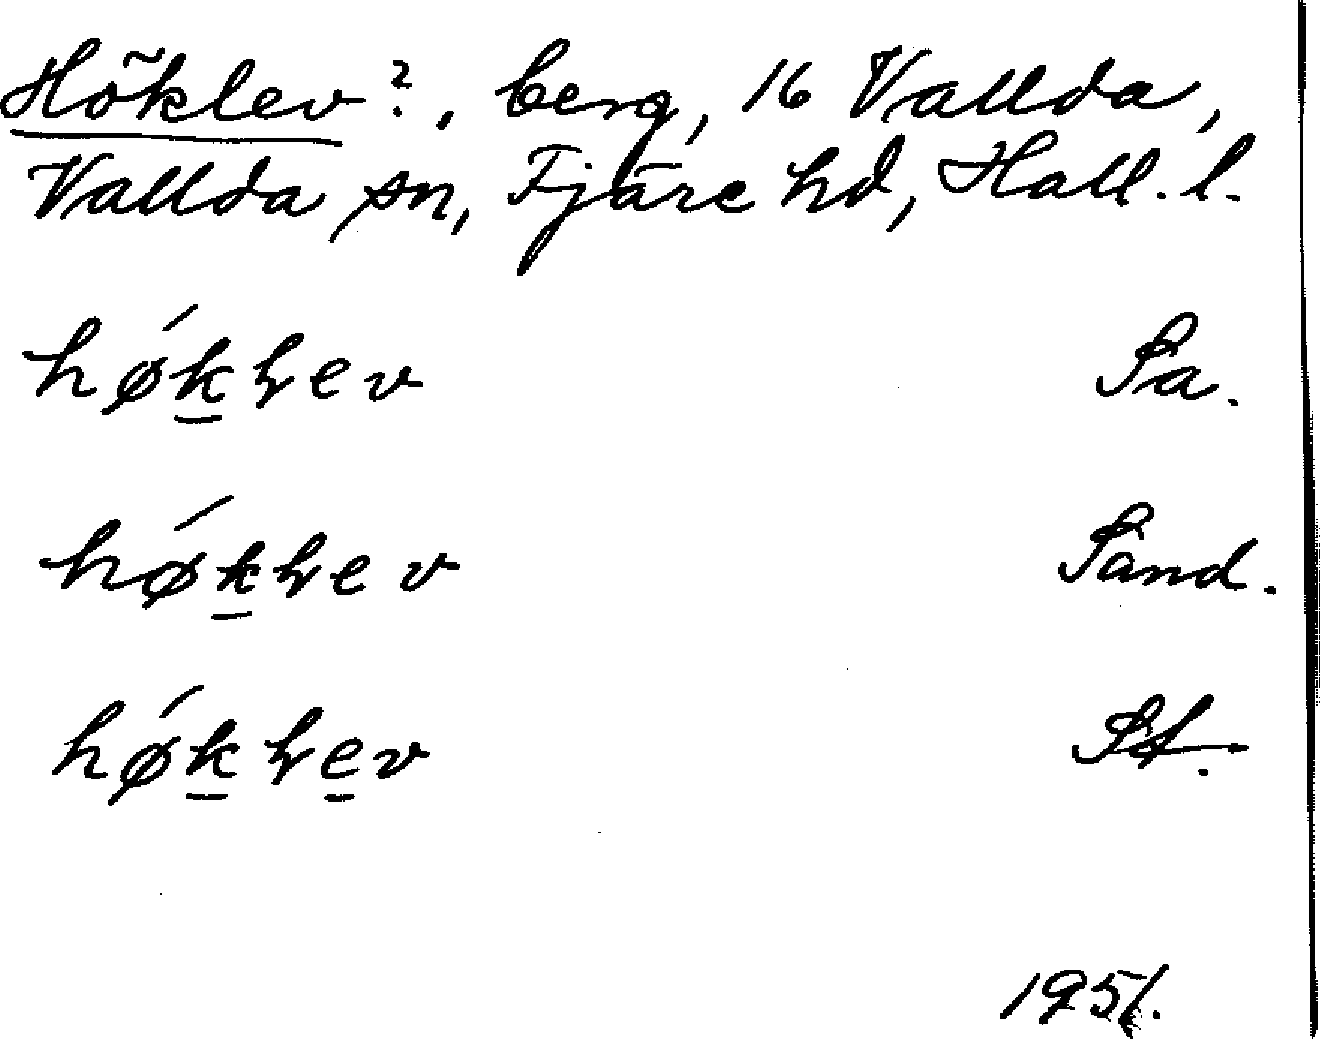 Höklev?, berg, 16 Vallda,
Vallda sn, Fjäre hd, Hall. l.
høkLev Sa.
høkLev Sand.
høkLev St.
1951.